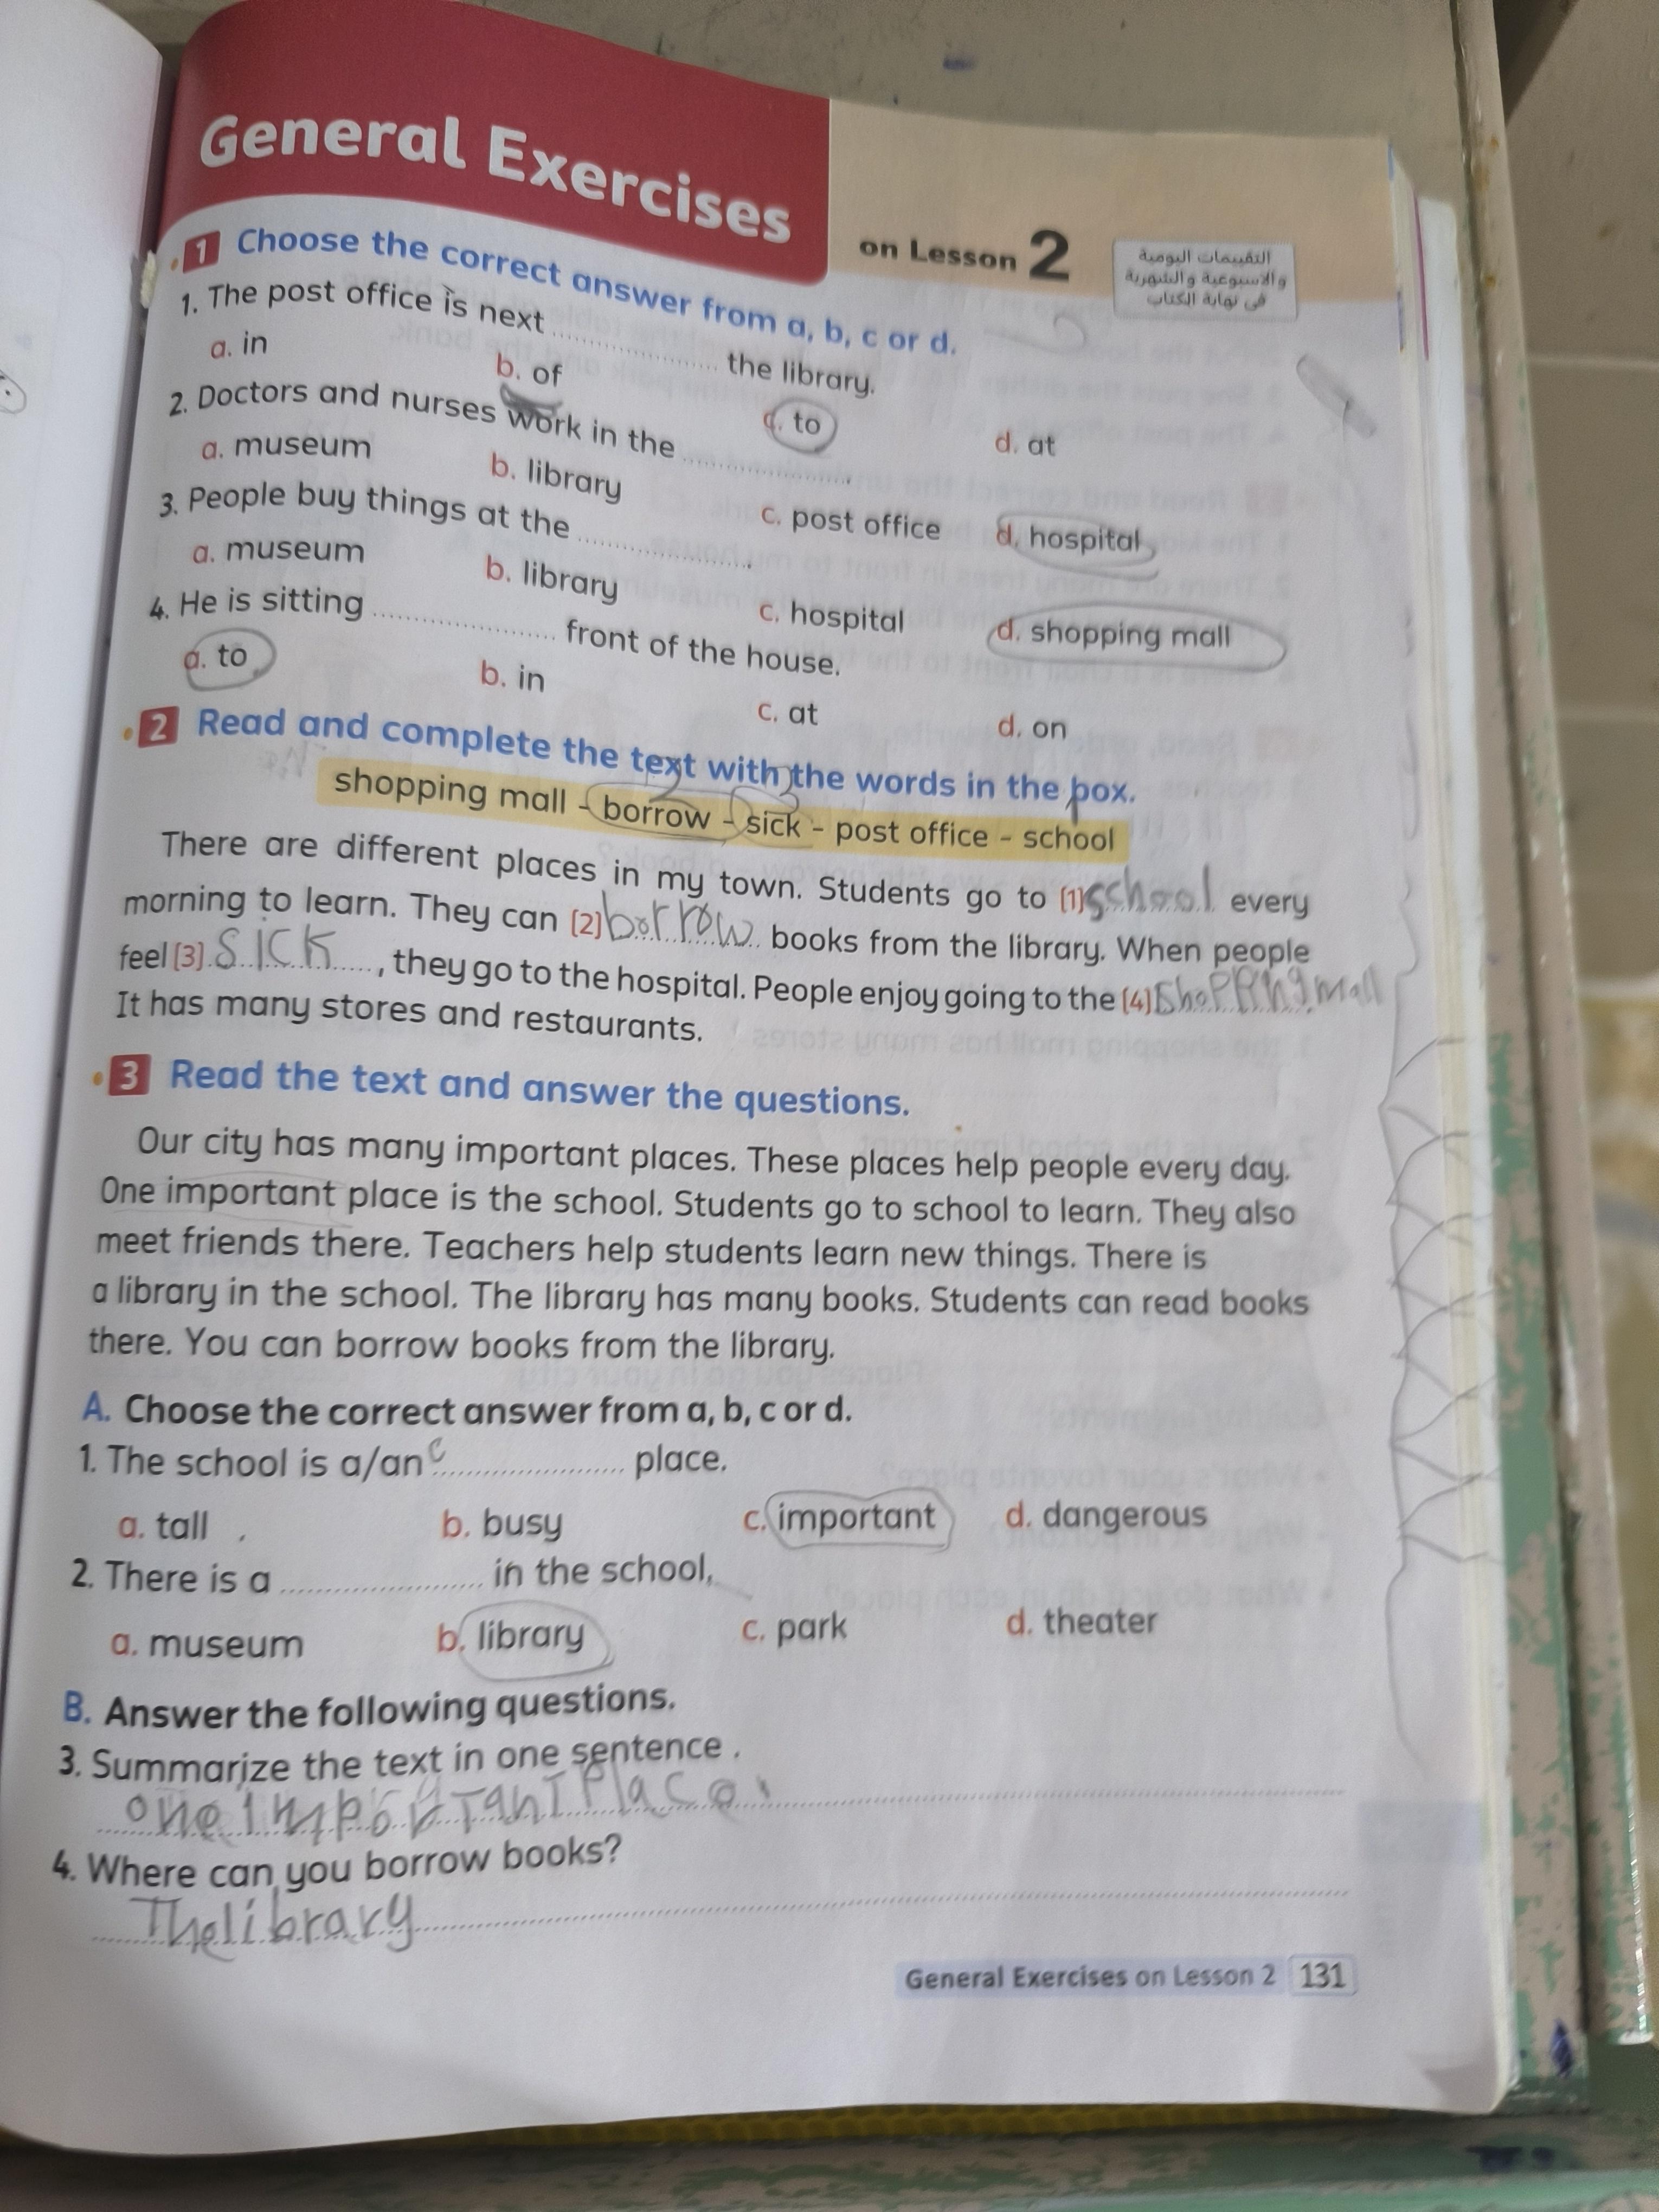 General Exercises
on Lesson 2
التقييمات اليومية
والأسبوعية والشهرية
فى نهاية الكتاب
1 Choose the correct answer from a, b, c or d.
1. The post office is next .................... the library.
a. in b. of c. to d. at
2. Doctors and nurses work in the .................... .
a. museum b. library c. post office d. hospital
3. People buy things at the .................... .
a. museum b. library c. hospital d. shopping mall
4. He is sitting .................... front of the house.
a. to b. in c. at d. on
2 Read and complete the text with the words in the box.
shopping mall - borrow - sick - post office - school
There are different places in my town. Students go to (1) school every
morning to learn. They can (2) borrow books from the library. When people
feel (3) sick , they go to the hospital. People enjoy going to the (4) shopping mall
It has many stores and restaurants.
3 Read the text and answer the questions.
Our city has many important places. These places help people every day.
One important place is the school. Students go to school to learn. They also
meet friends there. Teachers help students learn new things. There is
a library in the school. The library has many books. Students can read books
there. You can borrow books from the library.
A. Choose the correct answer from a, b, c or d.
1. The school is a/an c .................... place.
a. tall b. busy c. important d. dangerous
2. There is a .................... in the school,
a. museum b. library c. park d. theater
B. Answer the following questions.
3. Summarize the text in one sentence .
one important place
4. Where can you borrow books?
The library
General Exercises on Lesson 2 131